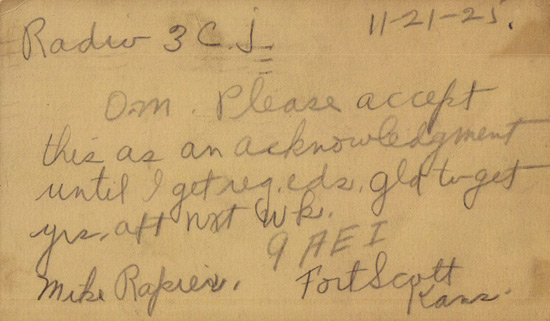 Radio 3 C.j. 11-21-25.
Om. Please accept
this as an acknowledgment
until I get reg. cds. gld to get
yrs. aft nxt wk.
9 AEI
Mike Rapier. Fort Scott
Kans.